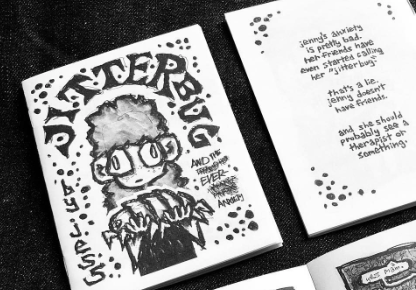 JITTERBUG
by JESS
AND THE
EVER-
ANXIETY
jenny's anxiety
is pretty bad.
her friends have
even started calling
her "jitterbug."
that's a lie.
jenny doesn't
have friends.
and she should
probably see a
therapist or
something.